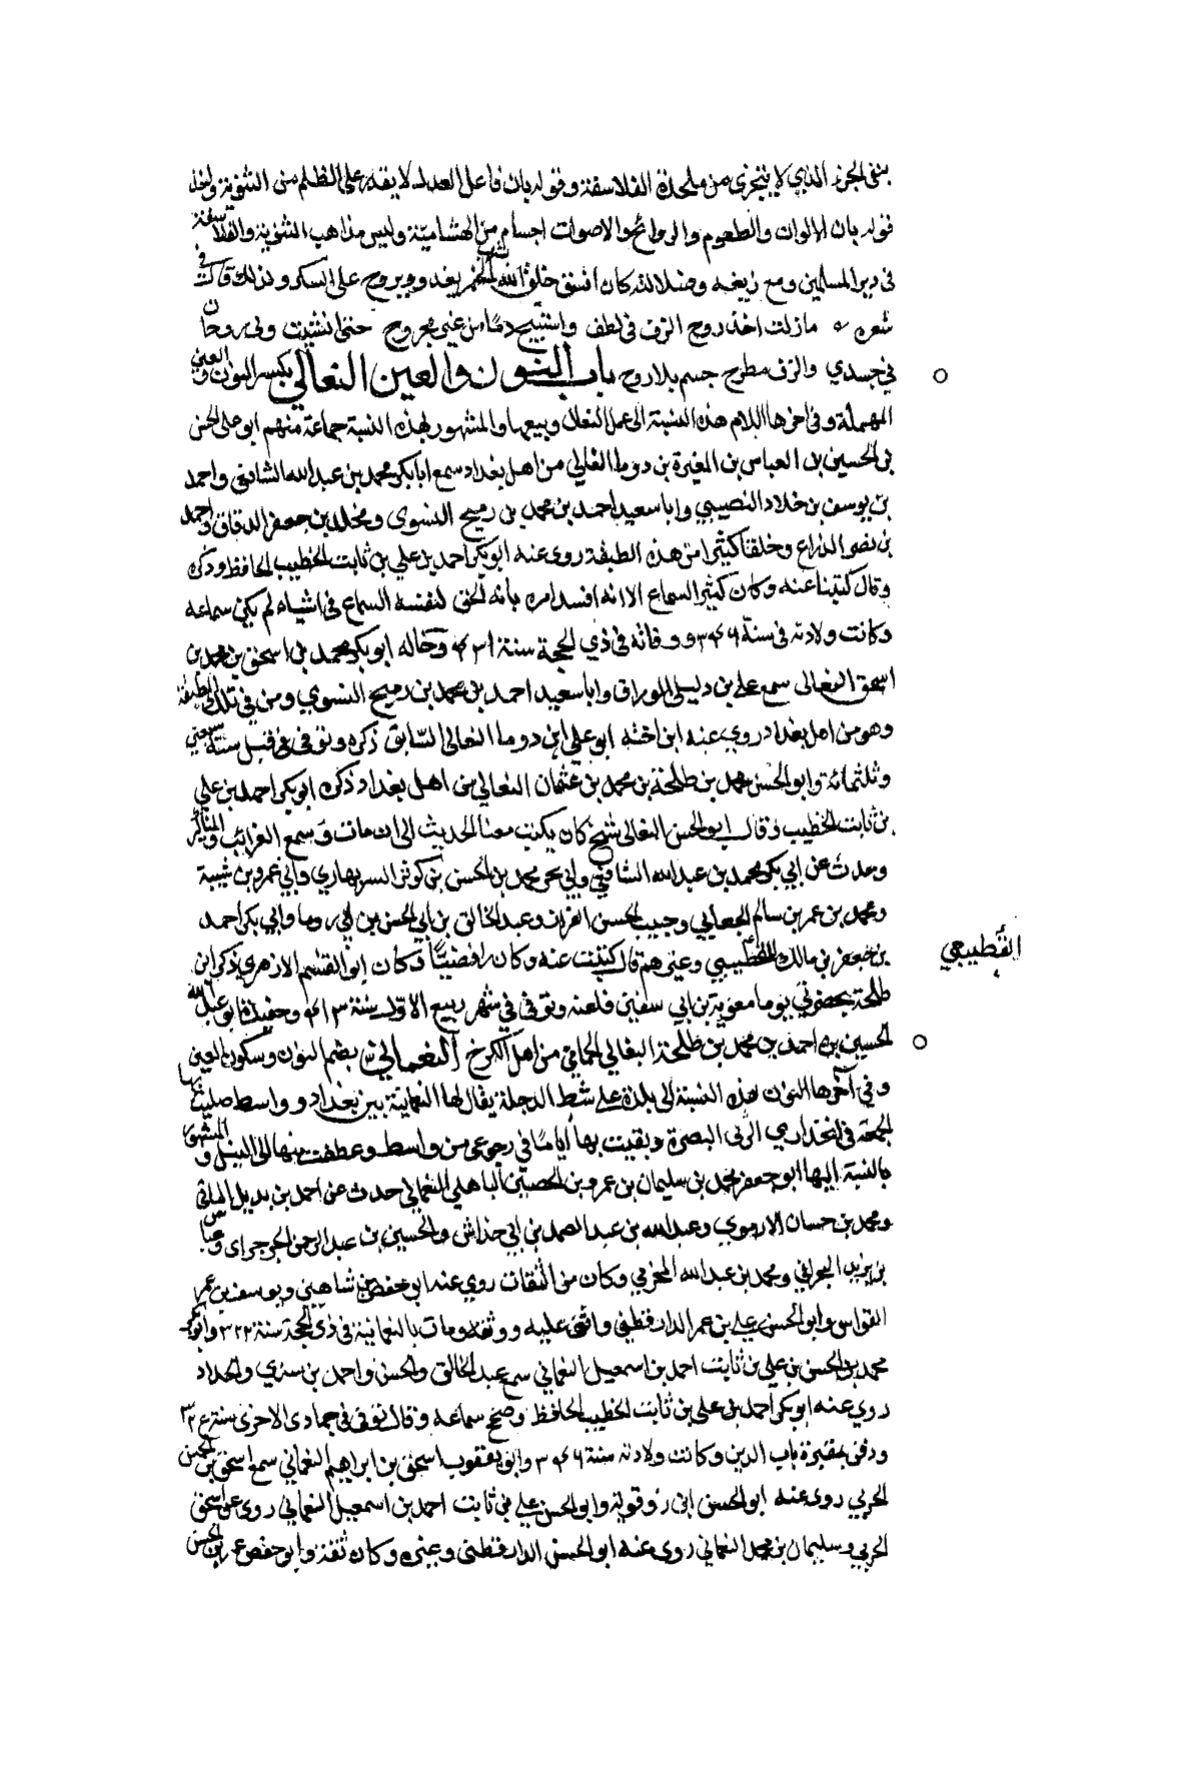 بنفي الجزء الذي لا يتجزى من ملحدة الفلاسفة وقوله بان فاعل العدل لا يقدر على الظلم من الثنوية واخذ
قوله بان الالوان والطعوم والروائح والاصوات اجسام من الهشامية وليس مذاهب الثنوية والفلاسفة
في دين المسلمين ومع زيغه وضلالته كان افسق خلق الله لشرب الخمر يغدو ويروح على السكر ولذلك قال في
شعره ه مازلت اخذ روح الزق في لطف واستبيح دما من غير مجروح حتى انثنيت ولي روحان
في جسدي والزق مطرح جسم بلا روح باب النون والعين النعالي بكسر النون والعين
المهملة وفي اخرها اللام هذه النسبة الى عمل النعال وبيعها والمشهور بهذه النسبة جماعة منهم ابو علي الحسن
بن الحسين بن العباس بن المغيرة بن دوما النعالي من اهل بغداد سمع ابا بكر محمد بن عبد الله الشافعي واحمد
بن يوسف بن خلاد النصيبي وابا سعيد احمد بن محمد بن رميح النسوي ومخلد بن جعفر الدقاق واحمد
بن نصر الذراع وخلقا كثيرا من هذه الطبقة روى عنه ابو بكر احمد بن علي بن ثابت الخطيب الحافظ وذكره
وقال كتبنا عنه وكان كثير السماع الا انه افسد امره بانه الحق لنفسه السماع في اشياء لم يكن سماعه
وكانت ولادته في سنة ٣٤٦ ووفاته في ذي الحجة سنة ٤٣١ وخاله ابو بكر محمد بن اسحق بن محمد بن
اسحق النعالي سمع علي بن دليل الوراق وابا سعيد احمد بن محمد بن رميح النسوي ومن في تلك الطبقة
وهو من اهل بغداد روى عنه ابن اخته ابو علي ابن دوما النعالي السابق ذكره وتوفي قبل سنة سبعين
وثلثمائة وابو الحسن محمد بن طلحة بن محمد بن عثمان النعالي من اهل بغداد ذكره ابو بكر احمد بن علي
بن ثابت الخطيب وقال ابو الحسن النعالي شيخ كان يكتب معنا الحديث الى ان مات وسمع الغرائب والمناكر
وحدث عن ابي بكر محمد بن عبد الله الشافعي وابي بحر محمد بن الحسن بن كوثر البربهاري وابي عمرو بن شيبة
ومحمد بن عمر بن سالم الجعابي وحبيب بن الحسن القزاز وعبد الخالق بن ابي الحسن بن ابي روما وابي بكر احمد
بن جعفر بن مالك القطيبي وغيرهم قال كتبت عنه وكان رافضيا وكان ابو القسم الازهري ذكر ابن
القطيعي
طلحة بحضرتي يوما معوية بن ابي سفين فلعنه وتوفي في شهر ربيع الاول سنة ٤١٣ وحفيده ابو عبد الله
الحسين بن احمد بن محمد بن طلحة النعالي الحمامي من اهل الكرخ النعماني بضم النون وسكون العين
وفي آخرها النون هذه النسبة الى بلدة على شط الدجلة يقال لها النعمانية بين بغداد وواسط صليت بها
الجمعة في انحداري الى البصرة وبقيت بها اياما في رجوعي من واسط وعطفت منها الى النيل والمشهور
بالنسبة اليها ابو جعفر محمد بن سليمان بن عمرو بن الحصين الباهلي النعماني حدث عن احمد بن بديل اليامي
ومحمد بن حسان الازموي وعبد الله بن عبد الصمد بن ابي خداش والحسين بن عبد الرحمن الجرجراي وعباس
بن يزيد البحراني ومحمد بن عبد الله المخرمي وكان من الثقات روي عنه ابو حفص بن شاهين ويوسف بن عمر
القواس وابو الحسن علي بن عمر الدارقطني واثنى عليه ووثقه ومات بالنعمانية في ذي الحجة سنة ٣٢٢ وابو بكر
محمد بن الحسن بن علي بن ثابت احمد بن اسمعيل النعماني سمع عبد الخالق والحسن واحمد بن سندي والحداد
روي عنه ابو بكر احمد بن علي بن ثابت الخطيب الحافظ وصحح سماعه وقال توفي في جمادى الاخرى سنة
ودفن بمقبرة باب الدير وكانت ولادته سنة ٣٤٦ وابو يعقوب اسحق بن ابراهيم النعماني سمع اسحق بن الحسن
الحربي روى عنه ابو الحسن ابن رزقويه وابو الحسن علي بن ثابت احمد بن اسمعيل النعماني روى عن اسحق
الحربي وسليمان بن محمد النعماني روى عنه ابو الحسن الدارقطني وغيره وكان ثقة وابو حفص عمر بن الحسن